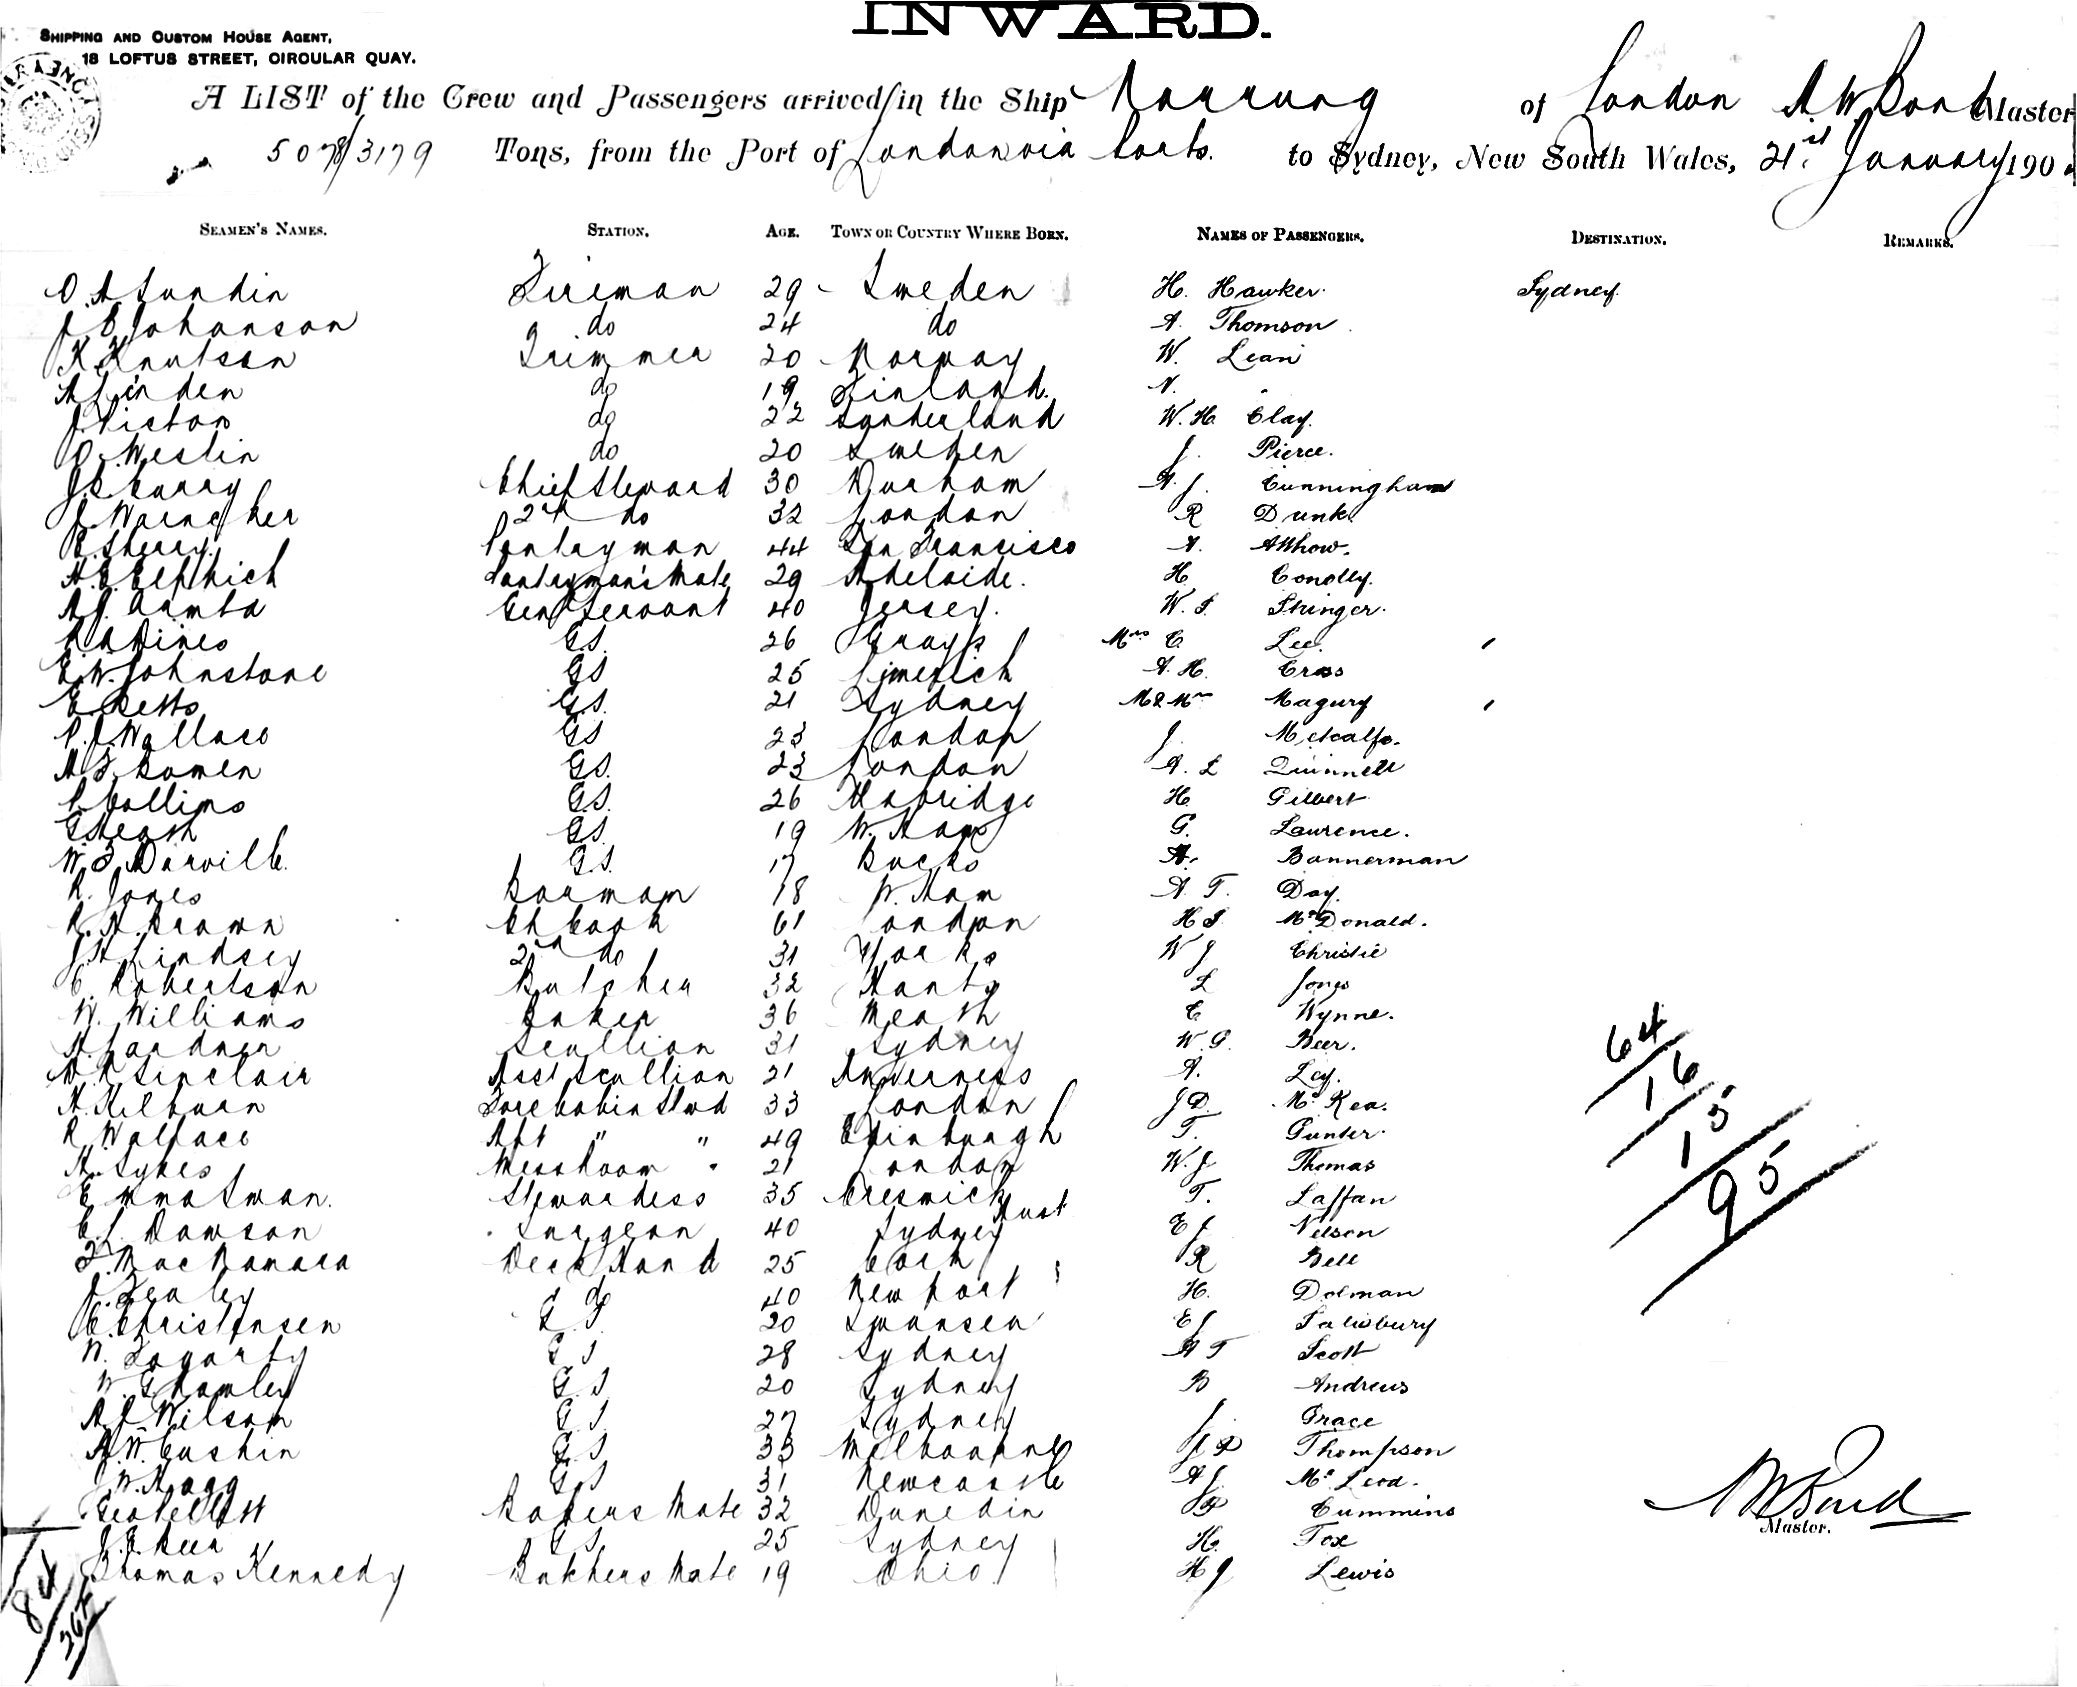 INWARD.
SHIPPING AND CUSTOM HOUSE AGENT,
18 LOFTUS STREET, CIRCULAR QUAY.
A LIST of the Crew and Passengers arrived in the Ship Narrung of London A W Bond Master
5078/3179 Tons, from the Port of London via Ports. to Sydney, New South Wales, 21st January 190
SEAMEN'S NAMES. STATION. AGE. TOWN OR COUNTRY WHERE BORN. NAMES OF PASSENGERS. DESTINATION. REMARKS.
O. A Sundin Fireman 29 - Sweden H. Hawker. Sydney.
J. E Johanson do 24 do A. Thomson
K. Knutson Trimmer 20 - Norway W. Lean
A Linden do 19 Finland. N. "
J. do 22 Sunderland W. H. Clay.
O. Weslin do 20 Sweden J. Pierce.
J. C Curry Chief Steward 30 Durham A. J. Cunningham
J. 2nd do 32 London R Dunk.
R. Sherry. Pantryman 44 San Francisco A. Allhow.
A. E. Pantryman's Mate 29 Adelaide. H. Conolly.
A. J. Genl Servant 40 Jersey. W. S. Stringer.
Hines G.S. 26 Grays. Mrs C. Lee.
E. W. Johnstone G.S 25 Limerick A. H. Cross
E. Betts G.S. 21 Sydney M & Mrs Magury
P. J. Wallace G.S 23 London J. Metcalfe.
A. F. Bowen G.S. 23 London A. L Quinnell
P. Collins G.S. 26 Uxbridge H. Gilbert
G. Heath G.S. 19 W. Ham G. Laurence.
W. F. Darvill G.S. 17 Bucks A. Bannerman
R. Jones Barman 18 W. Ham A. T. Day.
R. H. Brown Ch Cook 61 London H S. McDonald.
J. H. Lindsey 2nd do 31 Yorks W J Christie
C Robertson Butcher 32 Hants L Jones
W. Williams Baker 36 Meath E Wynne.
A. Lardner Scullion 31 Sydney W. G. Beer.
D. R. Sinclair Asst Scullion 21 Inverness A. Ley.
A. Kilburn Fore Cabin Stwd 33 London J D. McRea.
R. Wallace Aft " " 49 Edinburgh T. Gunter.
A. Sykes Messroom " 21 London W. J Thomas
Emma Swan. Stewardess 35 Creswick Aust T. Laffan
C. L. Dawson Surgeon 40 Sydney E J Nelson
F. MacNamara Deck Hand 25 Cork R Bell
J. Fealey do 40 Newport H. Dolman
C. Christensen G S 20 Swansea E J Salisbury
W. Fogarty G S 28 Sydney A T Scott
W. G Hawley G. S 20 Sydney B Andrews
A J Wilson G S 27 Sydney J. Grace
A. W. Cushin G. S 33 Melbourne J. F Thompson
J. W. Hogg G S 31 Newcastle A J. McLeod.
Geo Kellett Bakers Mate 32 Dunedin F Cummins
J. E. Beer G S 25 Sydney H. Fox
Thomas Kennedy Butchers Mate 19 Ohio H J Lewis
64
16
15
95
A W Bond
Master.
84